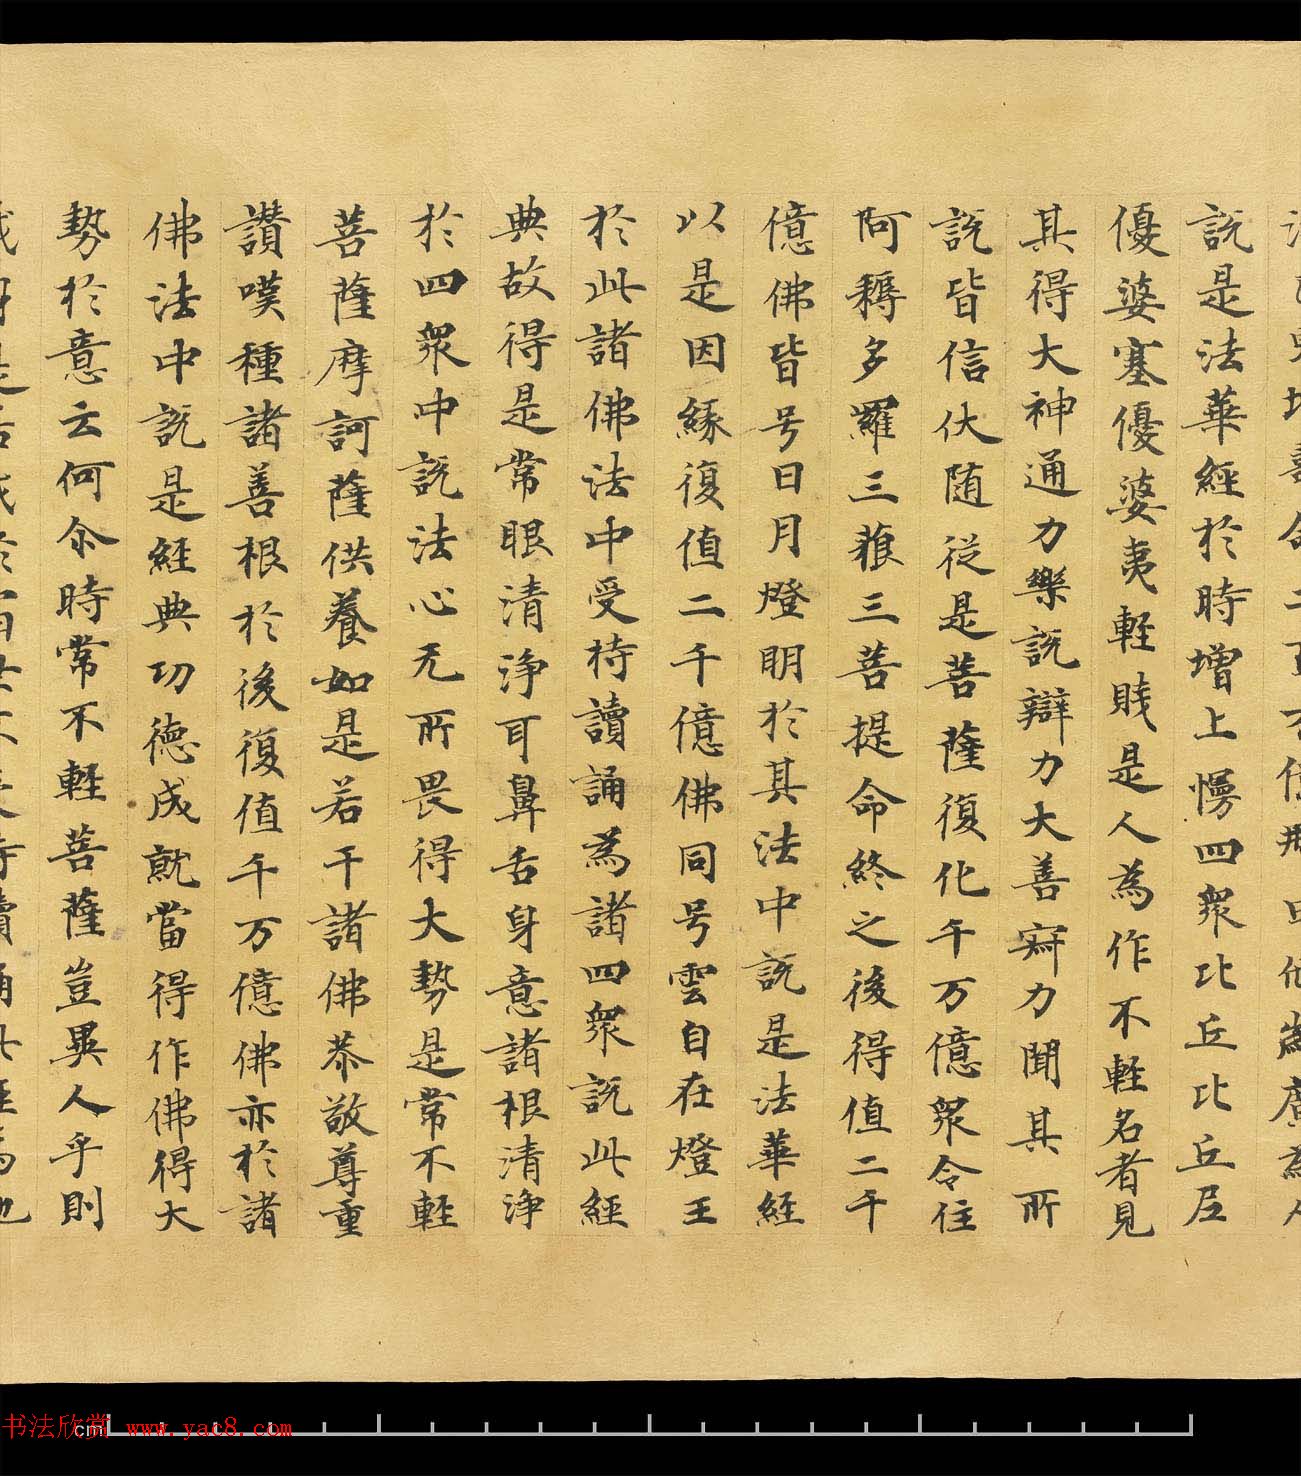 增壽命二百万億那由他歲廣為人
說是法華經於時增上慢四眾比丘比丘尼
優婆塞優婆夷輕賤是人為作不輕名者見
其得大神通力樂說辯力大善寂力聞其所
說皆信伏随從是菩薩復化千万億眾令住
阿耨多羅三藐三菩提命終之後得值二千
億佛皆号日月燈明於其法中說是法華經
以是因緣復值二千億佛同号雲自在燈王
於此諸佛法中受持讀誦為諸四眾說此經
典故得是常眼清淨耳鼻舌身意諸根清淨
於四眾中說法心无所畏得大勢是常不輕
菩薩摩訶薩供養如是若干諸佛恭敬尊重
讚嘆種諸善根於後復值千万億佛亦於諸
佛法中說是經典功德成就當得作佛得大
勢於意云何尒時常不輕菩薩豈異人乎則
我身是若我於宿世不受持讀誦此經為他
书法欣赏 www.yac8.com
cm